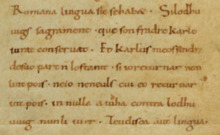 Romana lingua sic se habet. Silodhu
uigs sagrament. que son fradre karlo
iurat conseruat. Et Karlus meossendra
desuo part ñ lostanit. si io returnar non
lint pois. neio neneuls cui eo returnar
int pois. in nulla aiudha contra lodhu
uuig nun li iuer. Teudisca aut lingua